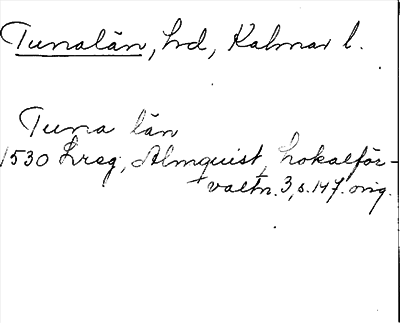 Tunalän, hd, Kalmar l.
Tuna län
1530 Lreg, Almquist, Lokalför-
valtn. 3, s. 147. orig.